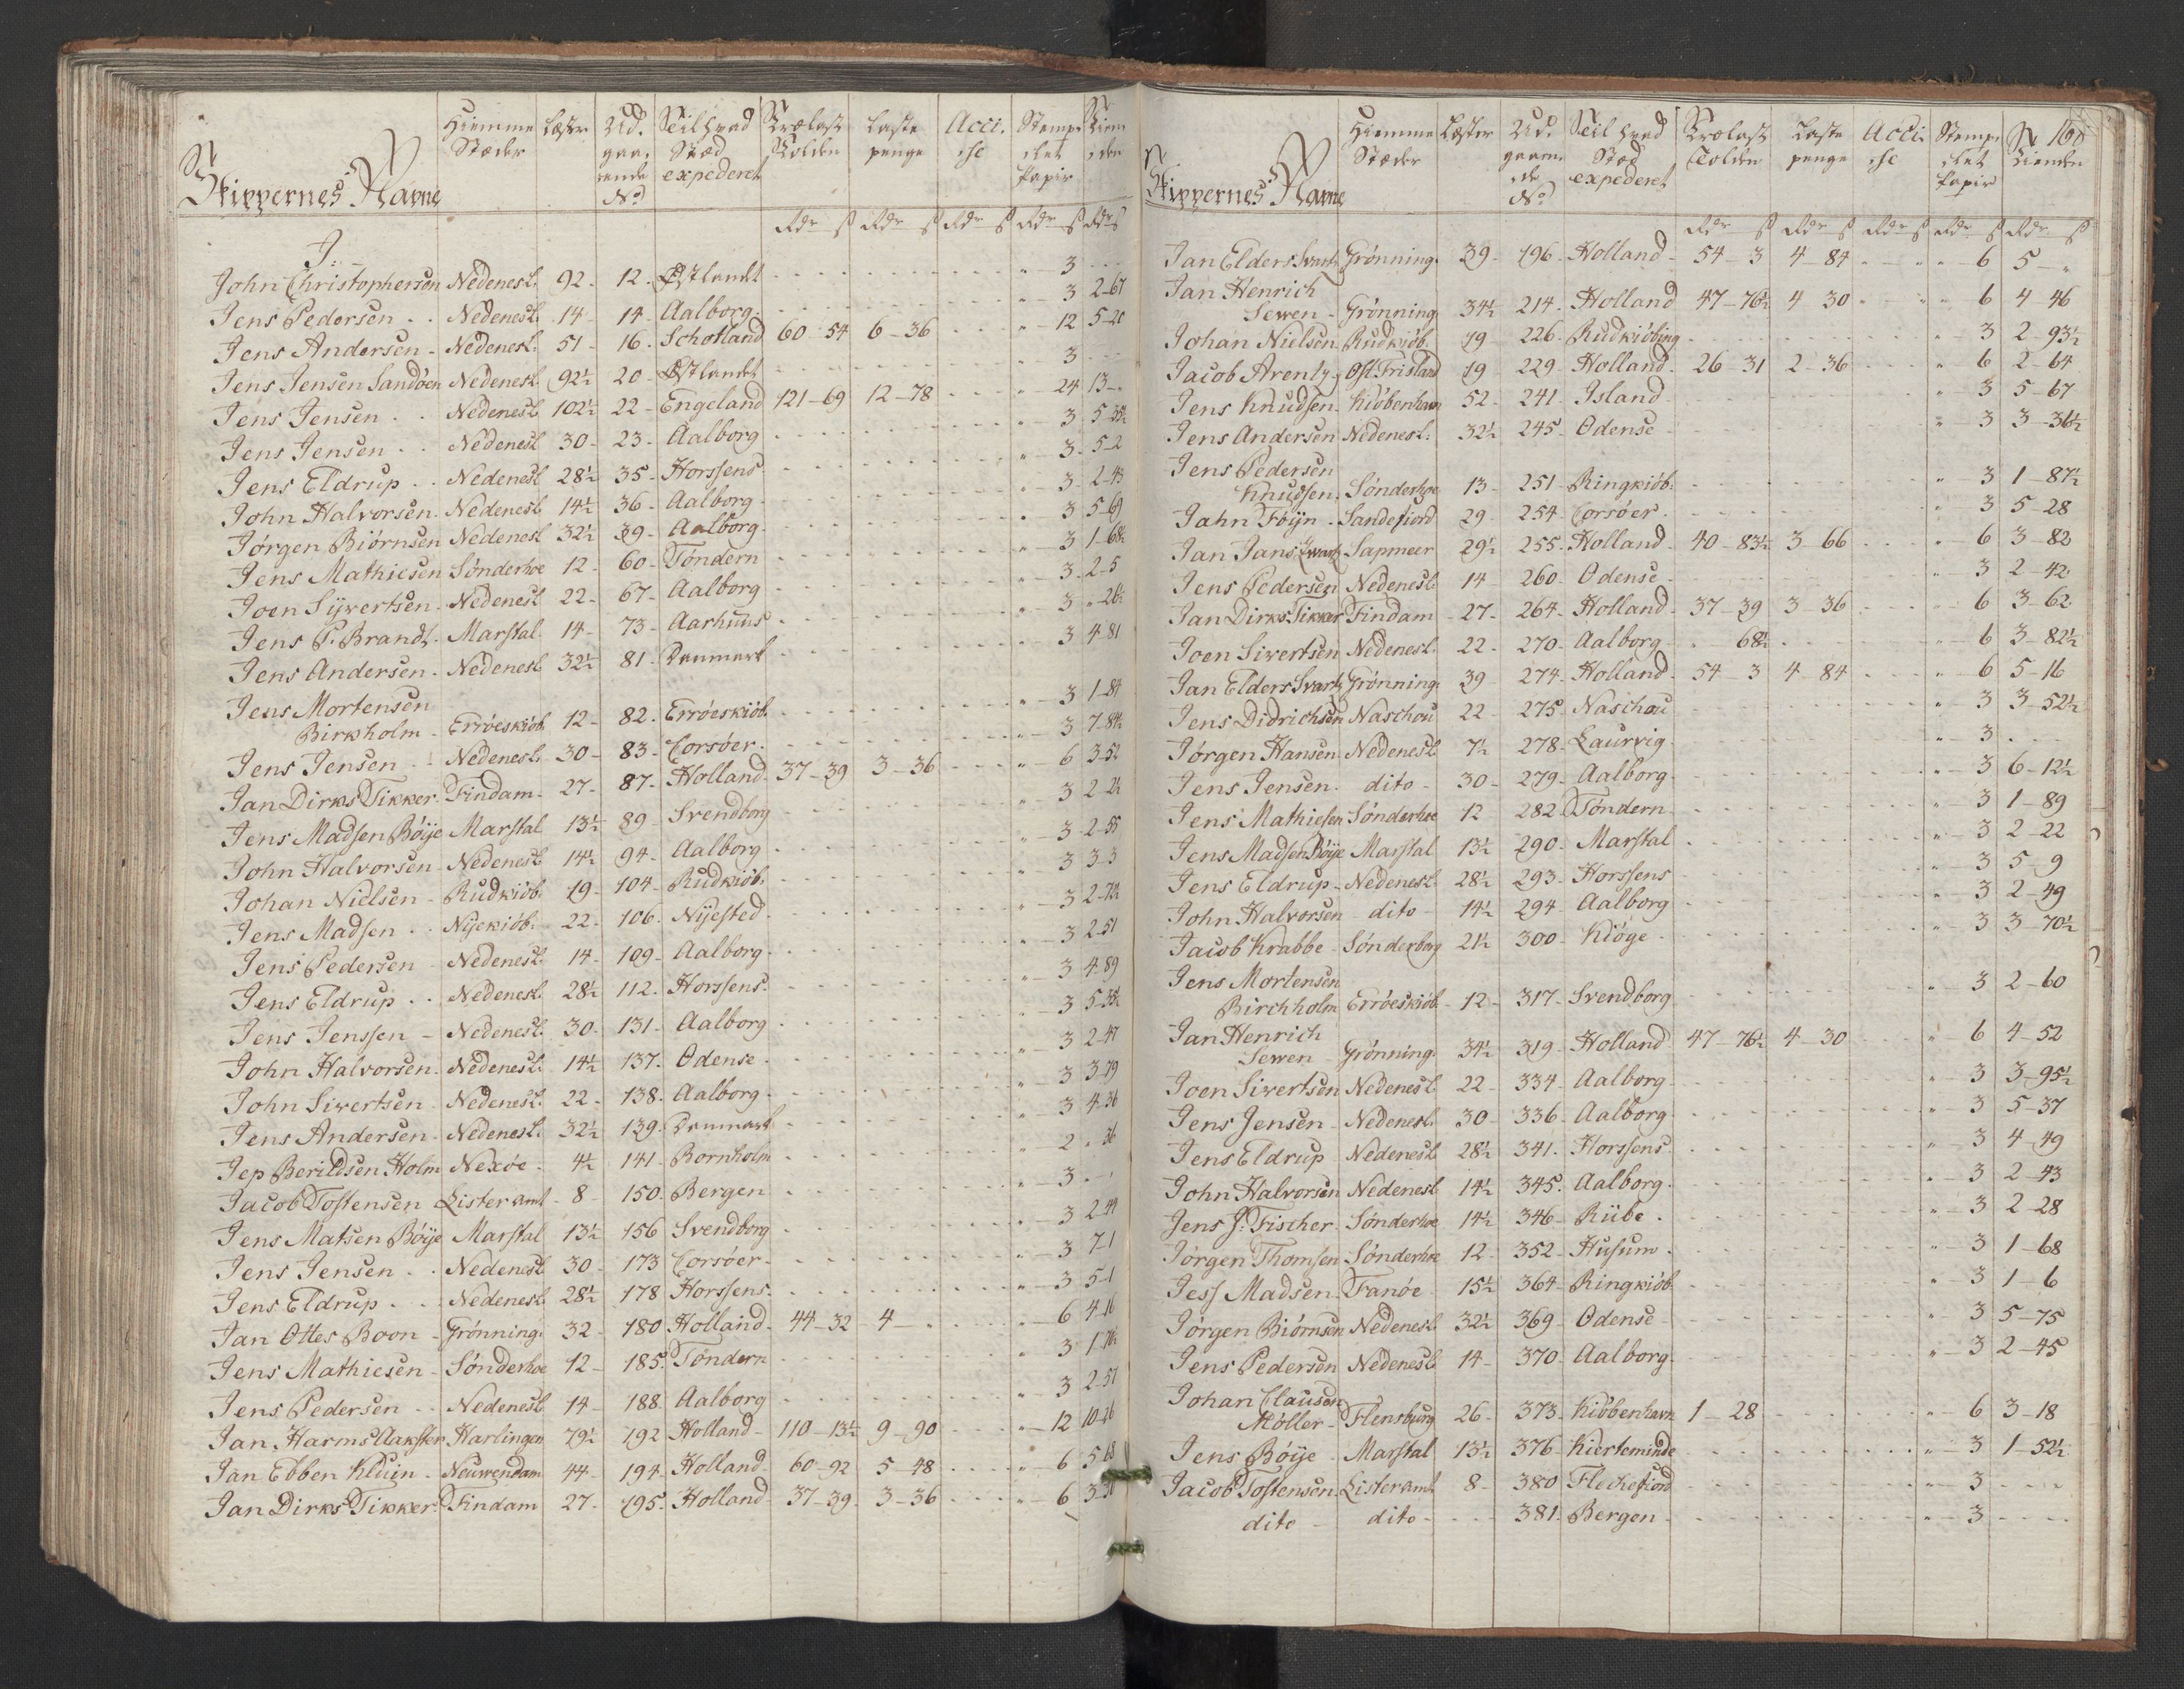 Skippernes Navne | Hiemme Stæder | Læster | Ud. gaaende No | Seil hvad Stæd expederet | Trælast Tolden | Laste penge | Accise | Stemplet Papir
Rdr ß Rdr ß Rdr ß Rdr ß Rdr ß
J.
John Christophersen Nedenesl. 92 - 12 - Østlandet 3
Jens Pedersen Nedenesl. 14 - 14 - Aalborg 3 2-67
Jens Andersen - Nedenesl. 51 - 16 - Schotland 60 54 6-36 12 5-20
Jens Jensen Sandöen Nedenesl. 92½ 20 - Østlandet 3
Jens Jensen Nedenesl. 102½ 22 - Engeland 121-69 12-78 24 13
Jens Jensen Nedenesl. 30 - 23 - Aalborg 3
Jens Eldrup Nedenesl. 28½ 35 - Horssens 3 5-2
John Halvorsen Nedenesl. 14½ 36 - Aalborg 3 2-43
Jørgen Biørnsen Nedenesl. 32½ 39 - Aalborg 3 5-69
Jens Mathiesen Sønderhoe 12 - 60 - Tøndern 3
Joen Sijvertsen Nedenesl. 22 - 67 - Aalborg 3 2-5
Jens P. Brandt Marstal 14 - 73 - Aarhuus 3
Jens Andersen Nedenesl. 32½ 81 - Danmark 3 4-81
Jens Mortensen
Birkholm - Erröeskiöb. 12 - 82 - Erröeskiöb. 3 1-84
Jens Jensen Nedenesl. 30 - 83 - Corsöer 3
Jan Dirks Tikker Findam - 27 - 87 - Holland 37-39 3-36 6 3-52
Jens Madsen Böije Marstal 13½ 89 - Svendborg 3
John Halvorsen Nedenesl. 14½ 94 - Aalborg 3 2-55
Johan Nielsen - Rudkiöb. 19 - 104 - Rudkiöb. 3 3-3
Jens Madsen Nijekiöb. 22 - 106 - Nijested 3
Jens Pedersen Nedenesl. 14 - 109 - Aalborg 3 2-51
Jens Eldrup Nedenesl. 28½ 112 - Horssens 3 4-89
Jens Jenssen - Nedenesl. 30 - 131 - Aalborg 3
John Halvorsen Nedenesl. 14½ 137 - Odense 3 2-47
John Sivertsen Nedenesl. 22 - 138 - Aalborg 3 3-79
Jens Andersen Nedenesl. 32½ 139 - Danmark 3 4-36
Jep Berildsen Holm Nexöe - 4½ 141 - Bornholm 2 " 36
Jacob Tostensen Lister amt - 8 - 150 - Bergen 3
Jens Matsen Böije Marstal 13½ 156 Svendborg 3 2-44
Jens Jensen Nedenesl. 30 - 173 Corsöer 3 7-1
Jens Eldrup Nedenesl. 28½ 178 Horssens 3 5-1
Jan Ottes Boon - Grönning. 32 - 180 Holland - 44-32 4 6 4-16
Jens Mathiesen - Sønderhoe 12 - 185 Tøndern 3
Jens Pedersen Nedenesl. 14 - 188 Aalborg 3 2-57
Jan Harms Aakster Harlingen 79½ 192 Holland - 110-13½ 9-90 12 10-26
Jan Ebben Kluin - Neuwendam 44 - 194 Holland 60-92 5-48 6 5-18
Jan Dirks Tikker Findam 27 - 195 Holland 37-39 3-36 6
Skippernes Navne | Hiemme Stæder | Læster | Ud. gaaende No | Seil hvad Stæd expederet | Trælast Tolden | Laste penge | Accise | Stemplet Papir | 160
Rdr ß Rdr ß Rdr ß Rdr ß Rdr ß
Jan Elders Svart Grönning. 39 - 196 - Holland - 54-3 4-84 6 5
Jan Henrich
Sewen - Grönning. 34½ 214 - Holland 47-76½ 4 30 6 4 46
Johan Nielsen Rudkiöb. 19 226 - Rudkiöbing 3 2-93½
Jacob Arentz Ost Frisland 19 - 229 - Holland 26 31 2-36 6 2-64
Jens Knudsen Kiöbenhavn 52 - 241 - Island 3 5-67
Jens Andersen Nedenesl. 32½ 245 - Odense 3 3-36½
Jens Pedersen
Knudsen Sønderhoe 13 - 251 - Ringkiöb. 3 1-87½
Jahn Föijn - Sandefiord 29 - 254 - Corsöer 3 5-28
Jan Jans Zwart Sapmeer 29½ 255 - Holland 40-83½ 3-66 6 3-82
Jens Pedersen Nedenesl. 14 - 260 - Odense 3 2-42
Jan Dirks Tikker Findam - 27 - 264 - Holland 37-39 3-36 6 3-62
Joen Sivertsen Nedenesl. 22 - 270 - Aalborg " 68½ 6 3-82½
Jan Elders Svart Grönning. 39 274 - Holland 54 3 4-84 6 5-16
Jens Didrichsen Naschou 22 - 275 - Naschou 3 3-52½
Jørgen Hansen Nedenesl. 7½ 278 - Laurvig 3
Jens Jensen dito - 30 - 279 - Aalborg 3 6-12½
Jens Mathiesen Sønderhoe 12 282 Tøndern 3 1-89
Jens Madsen Böije Marstal 13½ 290 - Marstal 3 2-22
Jens Eldrup - Nedenesl. 28½ 293 - Horssens 3 5-9
John Halvorsen dito - 14½ 294 - Aalborg 3 2-49
Jacob Krabbe - Sønderborg 21½ 300 - Kiöge 3 3-70½
Jens Mortensen
Birchholm Erröeskiöb. 12 - 317 - Svendborg 3 2-60
Jan Henrich
Sewen - Grönning. 34½ 319 - Holland 47-76½ 4-30 6 4-52
Joen Sivertsen Nedenesl. 22 - 334 - Aalborg 3 3-95½
Jens Jensen - Nedenesl. 30 - 336 - Aalborg 3 5-37
Jens Eldrup Nedenesl. 28½ 341 - Horssens 3 4-49
John Halvorsen Nedenesl. 14½ 345 - Aalborg 3 2-43
Jens J. Fischer Sønderhoe 14½ 346 - Riibe 3 2-28
Jørgen Thomsen Sønderhoe 12 - 352 - Husum 3 1-68
Jess Madsen Fanöe 15½ 364 - Ringkiöb. 3 1-6
Jørgen Biørnsen Nedenesl. 32½ 369 - Odense 3 5-75
Jens Pedersen Nedenesl. 14 - 370 - Aalborg 3 2-45
Johan Clausen
Möller - Flensburg 26 - 373 - Kiöbenhavn 1-28 6 3-18
Jens Böije - Marstal 13½ 376 - Kierteminde 3 1-52½
Jacob Tostensen Lister amt 8 - 380 Flechefiord 3
dito - dito - 381 Bergen 3